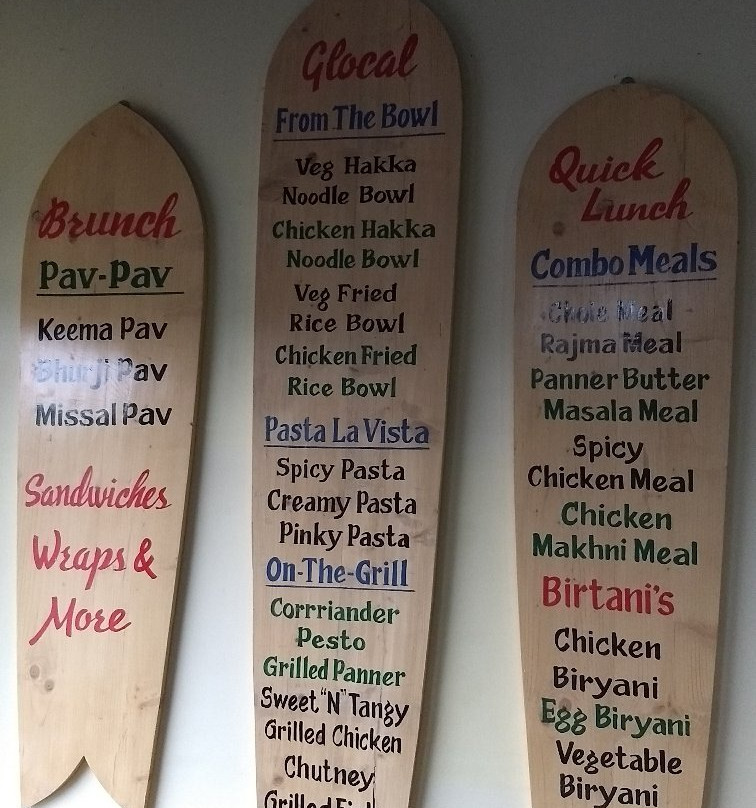 Brunch
Pav-Pav
Keema Pav
Bhurji Pav
Missal Pav
Sandwiches
Wraps &
More
Glocal
From The Bowl
Veg Hakka
Noodle Bowl
Chicken Hakka
Noodle Bowl
Veg Fried
Rice Bowl
Chicken Fried
Rice Bowl
Pasta La Vista
Spicy Pasta
Creamy Pasta
Pinky Pasta
On-The-Grill
Corrriander
Pesto
Grilled Panner
Sweet "N" Tangy
Grilled Chicken
Chutney
Grilled
Quick
Lunch
Combo Meals
Chole Meal
Rajma Meal
Panner Butter
Masala Meal
Spicy
Chicken Meal
Chicken
Makhni Meal
Birtani's
Chicken
Biryani
Egg Biryani
Vegetable
Biryani